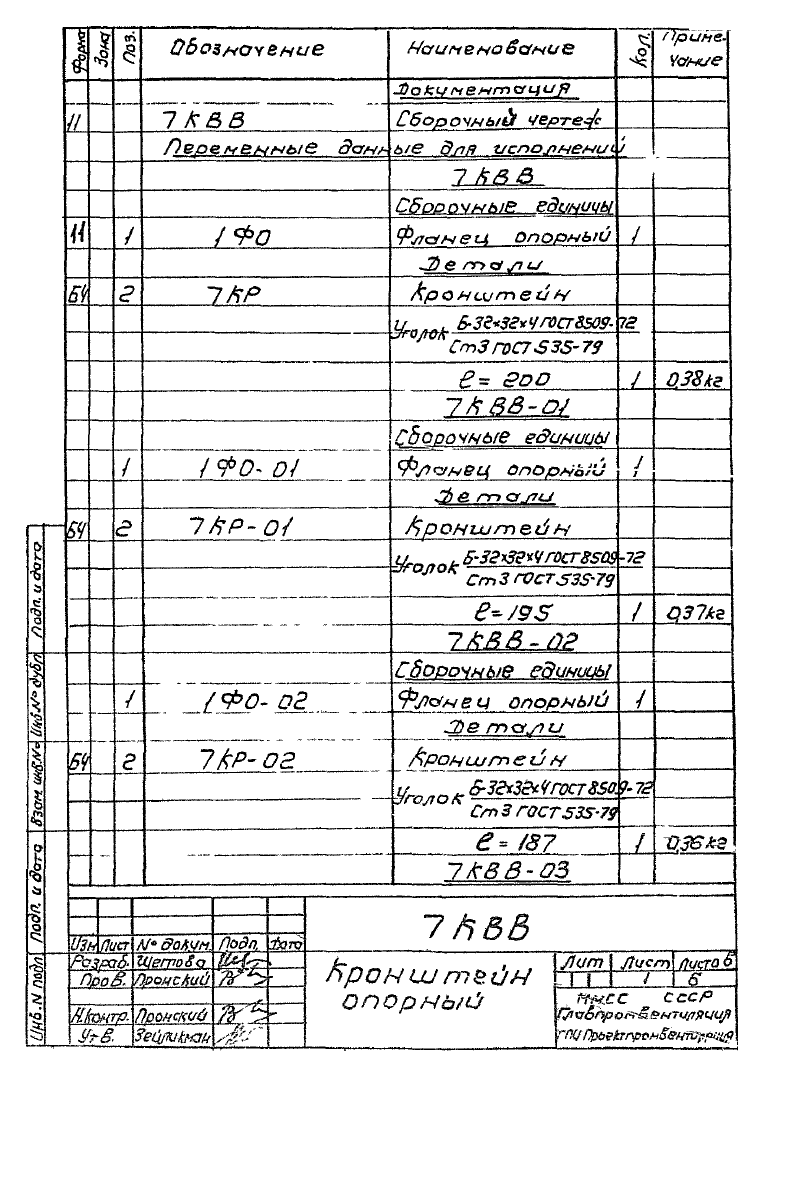 Форма Зона Поз. Обозначение Наименование Кол. Приме-
чание
Документация
11 7КВВ Сборочный чертеж
Переменные данные для исполнений
7КВВ
Сборочные единицы
11 1 1ФО Фланец опорный 1
Детали
БЧ 2 7КР Кронштейн
Уголок Б-32×32×4 ГОСТ 8509-72
Ст3 ГОСТ 535-79
ℓ= 200 1 0,38кг
7КВВ-01
Сборочные единицы
1 1ФО-01 Фланец опорный 1
Детали
БЧ 2 7КР-01 Кронштейн
Уголок Б-32×32×4 ГОСТ 8509-72
Ст3 ГОСТ 535-79
ℓ=195 1 0,37кг
7КВВ-02
Сборочные единицы
1 1ФО-02 Фланец опорный 1
Детали
БЧ 2 7КР-02 Кронштейн
Уголок Б-32×32×4 ГОСТ 8509-72
Ст3 ГОСТ 535-79
ℓ=187 1 0,36кг
7КВВ-03
Инв.N подл. Подп. и дата Взам. инв.№ Инв.№ дубл. Подп. и дата
7КВВ
Изм Лист № докум. Подп. Дата
Разраб. Щетова
Пров. Пронский
Н.контр. Пронский
Утв. Зейликман
Кронштейн
опорный
Лит Лист Листов
1 6
ММСС СССР
Главпромвентиляция
ГПИ Проектпромвентиляция